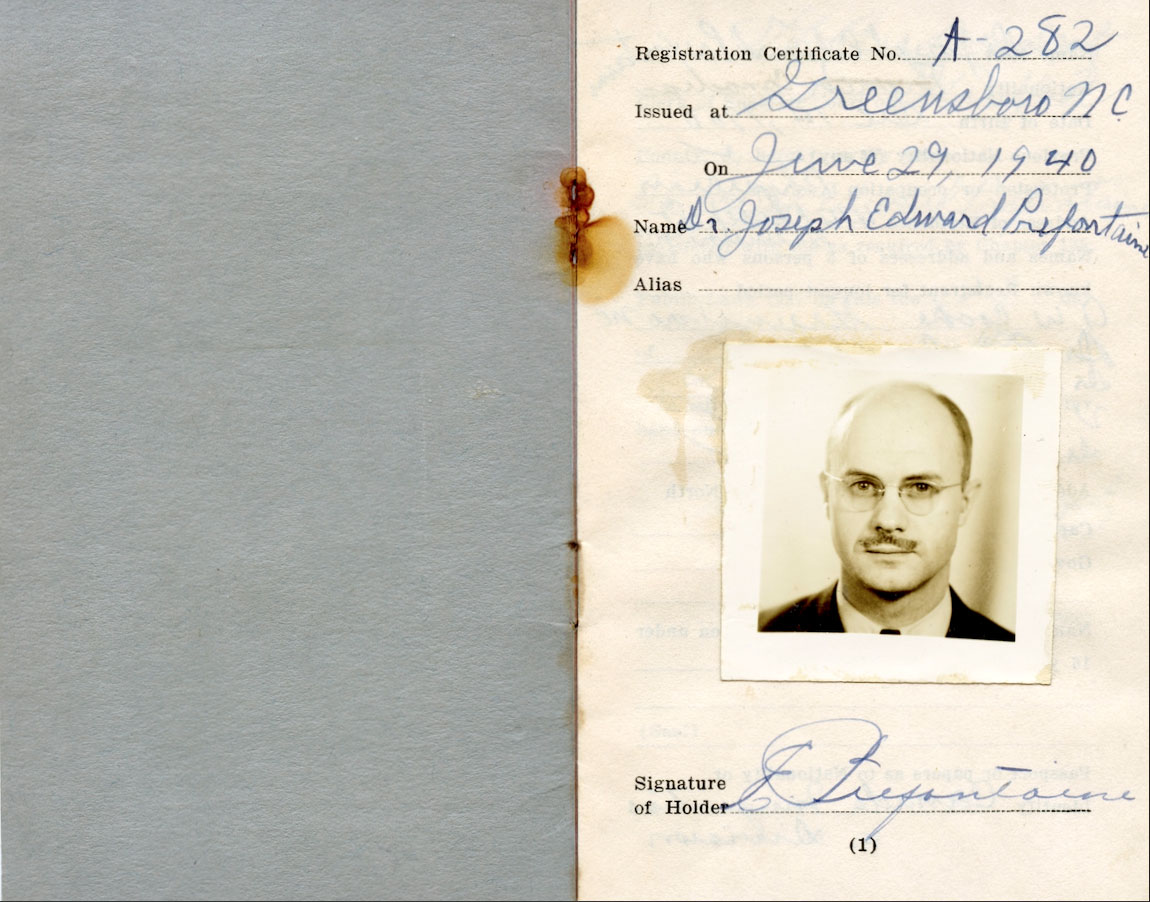 Registration Certificate No. A-282
Issued at Greensboro NC
On June 29, 1940
Name Dr. Joseph Edward Prefontaine
Alias
Signature
of Holder E. Prefontaine
(1)